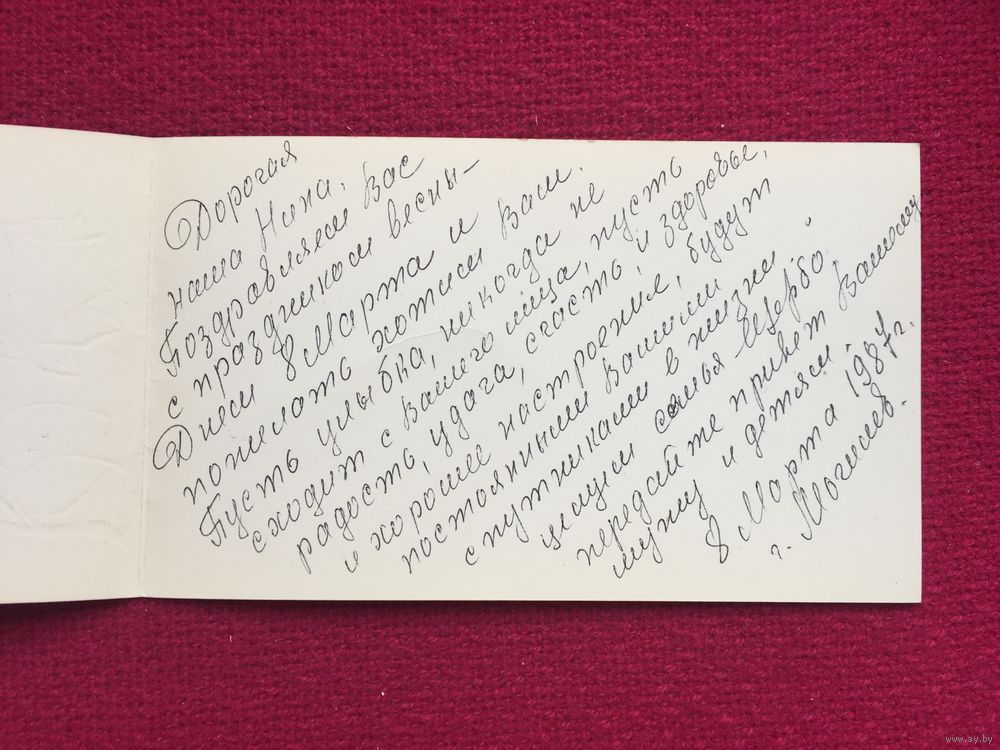 Дорогая
наша Нина.
Поздравляем Вас
с праздником весны -
Днем 8 Марта и
пожелать хотим Вам.
Пусть улыбка, никогда не
сходит с Вашего лица, пусть
радость, удача, счастье, и здоровье,
и хорошее настроение, будут
постоянными Вашими
спутниками в жизни
целуем семья Щербо.
передайте привет Вашему
мужу и детям.
8 Марта 1987 г.
г. Могилев.
www.ay.by